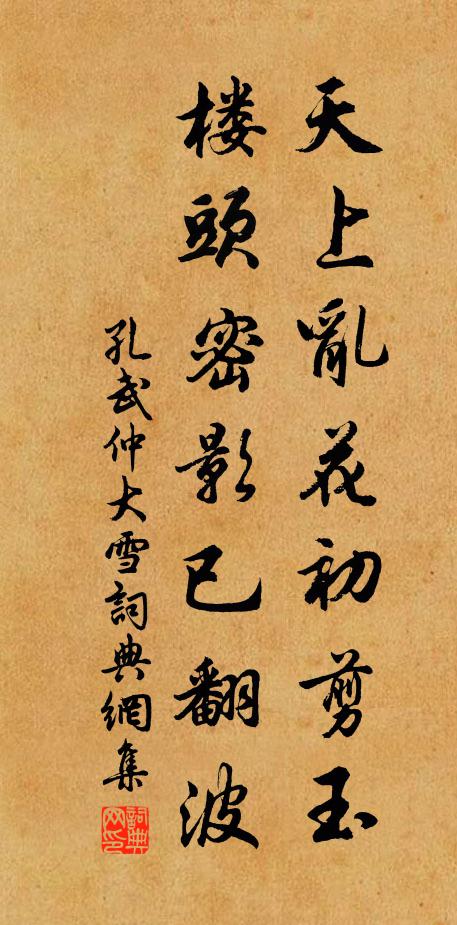 天上亂花初剪玉
楼頭密影已翻波
孔武仲大雪詞典網集
詞典网印